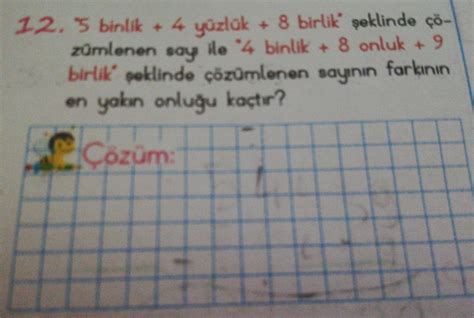 12. "5 binlik + 4 yüzlük + 8 birlik" şeklinde çö-
zümlenen sayı ile "4 binlik + 8 onluk + 9
birlik" şeklinde çözümlenen sayının farkının
en yakın onluğu kaçtır?
Çözüm: